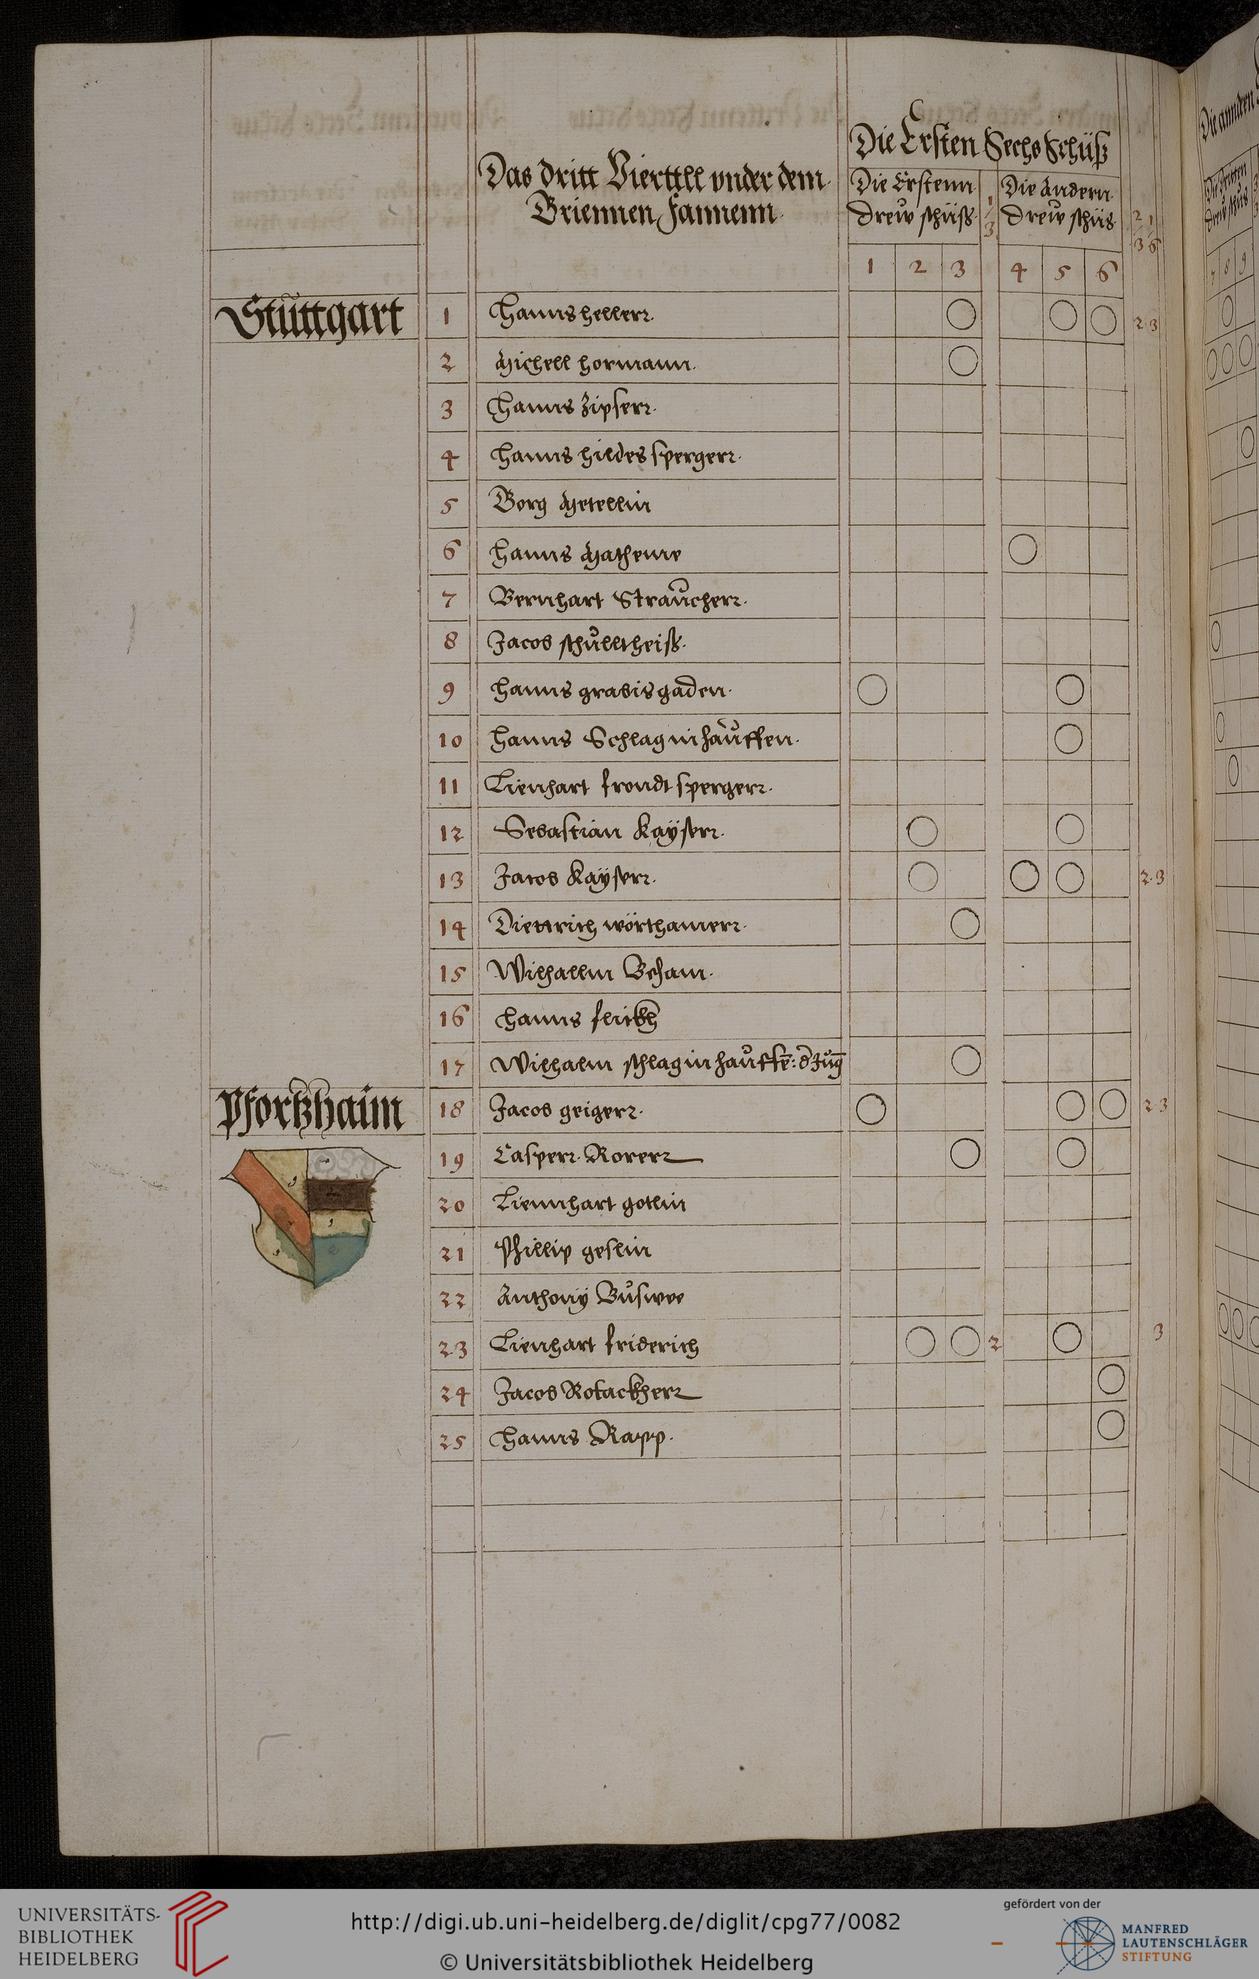 Die Ersten Sechs Schüß
Das dritt Vierttll vnder dem
Griennen Fannenn
Die Erstenn
drew schüss
1
3
Die Andern
drew schüs
2 1
3 6
1 2 3 4 5 6
Stuttgart
1 Hanns Hellerr 2 3
2 Michell Hormann
3 Hanns Zipserr
4 Hanns Hildes spergerr
5
6 Hanns
7 Bernhart Straucherr
8 Jacob schulltheiss
9 Hanns grabisgaden
10 Hanns Schlaginhauffen
11 Lienhart frondtspergerr
12 Sebastian Kayserr
13 Jacob Kayserr 2 3
14 Diettrich wörthamerr
15 Wilhallm
16 Hanns
17 Wilhalm schlaginhauffe: d Jüng
Pfortzhaim
18 Jacob geigerr 2 3
19 Casperr Rorerr
20 Liennhart
21 Phillip
22 Anthony
23 Lienhart friderich 2 3
24 Jacob
25 Hanns Rapp
Die anndern
Die Dritten
drew schüs
7 8 9
UNIVERSITÄTS-
BIBLIOTHEK
HEIDELBERG
http://digi.ub.uni-heidelberg.de/diglit/cpg77/0082
© Universitätsbibliothek Heidelberg
gefördert von der
MANFRED
LAUTENSCHLÄGER
STIFTUNG